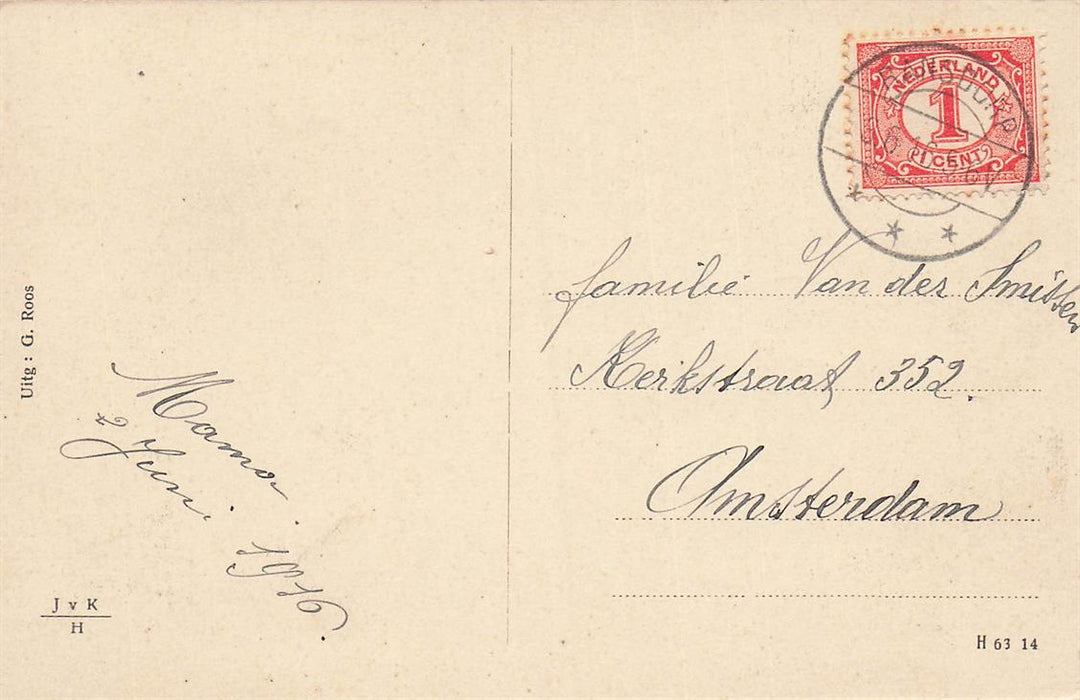 Uitg : G. Roos
Mama
2 Juni
1916
J v K
H
NEDERLAND
1
1 CENT
familie Van der Smissen
Kerkstraat 352.
Amsterdam
H 63 14